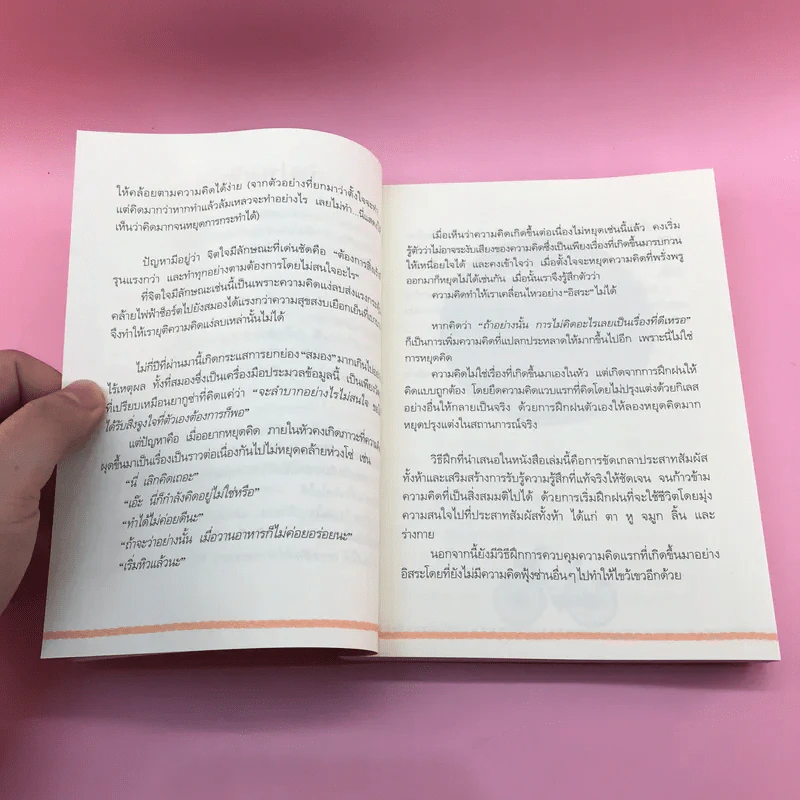 ให้คล้อยตามความคิดได้ง่าย (จากตัวอย่างที่ยกมาว่าตั้งใจจะทำ
แต่คิดมากว่าหากทำแล้วล้มเหลวจะทำอย่างไร เลยไม่ทำ...
เห็นว่าคิดมากจนหยุดการกระทำได้)
ปัญหามีอยู่ว่า จิตใจมีลักษณะที่เด่นชัดคือ “ต้องการ
รุนแรงกว่า และทำทุกอย่างตามต้องการโดยไม่สนใจอะไร”
ที่จิตใจมีลักษณะเช่นนี้เป็นเพราะความคิดแง่ลบส่งแรง
คล้ายไฟฟ้าช็อร์ตไปยังสมองได้แรงกว่าความสุขสงบเยือกเย็น
จึงทำให้เรายุติความคิดแง่ลบเหล่านั้นไม่ได้
ไม่กี่ปีที่ผ่านมานี้เกิดกระแสการยกย่อง “สมอง” มากเกินไป
ไร้เหตุผล ทั้งที่สมองซึ่งเป็นเครื่องมือประมวลข้อมูลนี้ เป็นเพียง
ที่เปรียบเหมือนยากูซ่าที่คิดแค่ว่า “จะลำบากอย่างไรไม่สนใจ
ได้รับสิ่งจูงใจที่ตัวเองต้องการก็พอ”
แต่ปัญหาคือ เมื่ออยากหยุดคิด ภายในหัวคงเกิดภาวะที่
ผุดขึ้นมาเป็นเรื่องเป็นราวต่อเนื่องกันไปไม่หยุดคล้ายห่วงโซ่ เช่น
“นี่ เลิกคิดเถอะ”
“เอ๊ะ นี่ก็กำลังคิดอยู่ไม่ใช่หรือ”
“ทำได้ไม่ค่อยดีนะ”
“ถ้าจะว่าอย่างนั้น เมื่อวานอาหารก็ไม่ค่อยอร่อยนะ”
“เริ่มหิวแล้วนะ”
เมื่อเห็นว่าความคิดเกิดขึ้นต่อเนื่องไม่หยุดเช่นนี้แล้ว คงเริ่ม
รู้ตัวว่าไม่อาจระงับเสียงของความคิดซึ่งเป็นเพียงเรื่องที่เกิดขึ้นมารบกวน
ให้เหนื่อยใจได้ และคงเข้าใจว่า เมื่อตั้งใจจะหยุดความคิดที่พรั่งพรู
ออกมาก็หยุดไม่ได้เช่นกัน เมื่อนั้นเราจึงรู้สึกตัวว่า
ความคิดทำให้เราเคลื่อนไหวอย่าง “อิสระ” ไม่ได้
หากคิดว่า “ถ้าอย่างนั้น การไม่คิดอะไรเลยเป็นเรื่องที่ดีเหรอ”
ก็เป็นการเพิ่มความคิดที่แปลกประหลาดให้มากขึ้นไปอีก เพราะนี่ไม่ใช่
การหยุดคิด
ความคิดไม่ใช่เรื่องที่เกิดขึ้นมาเองในหัว แต่เกิดจากการฝึกฝนให้
คิดแบบถูกต้อง โดยยึดความคิดแวบแรกที่คิดโดยไม่ปรุงแต่งด้วยกิเลส
อย่างอื่นให้กลายเป็นจริง ด้วยการฝึกฝนตัวเองให้ลองหยุดคิดมาก
หยุดปรุงแต่งในสถานการณ์จริง
วิธีฝึกที่นำเสนอในหนังสือเล่มนี้คือการขัดเกลาประสาทสัมผัส
ทั้งห้าและเสริมสร้างการรับรู้ความรู้สึกที่แท้จริงให้ชัดเจน จนก้าวข้าม
ความคิดที่เป็นสิ่งสมมติไปได้ ด้วยการเริ่มฝึกฝนที่จะใช้ชีวิตโดยมุ่ง
ความสนใจไปที่ประสาทสัมผัสทั้งห้า ได้แก่ ตา หู จมูก ลิ้น และ
ร่างกาย
นอกจากนี้ยังมีวิธีฝึกการควบคุมความคิดแรกที่เกิดขึ้นมาอย่าง
อิสระโดยที่ยังไม่มีความคิดฟุ้งซ่านอื่นๆ ไปทำให้ไขว้เขวอีกด้วย